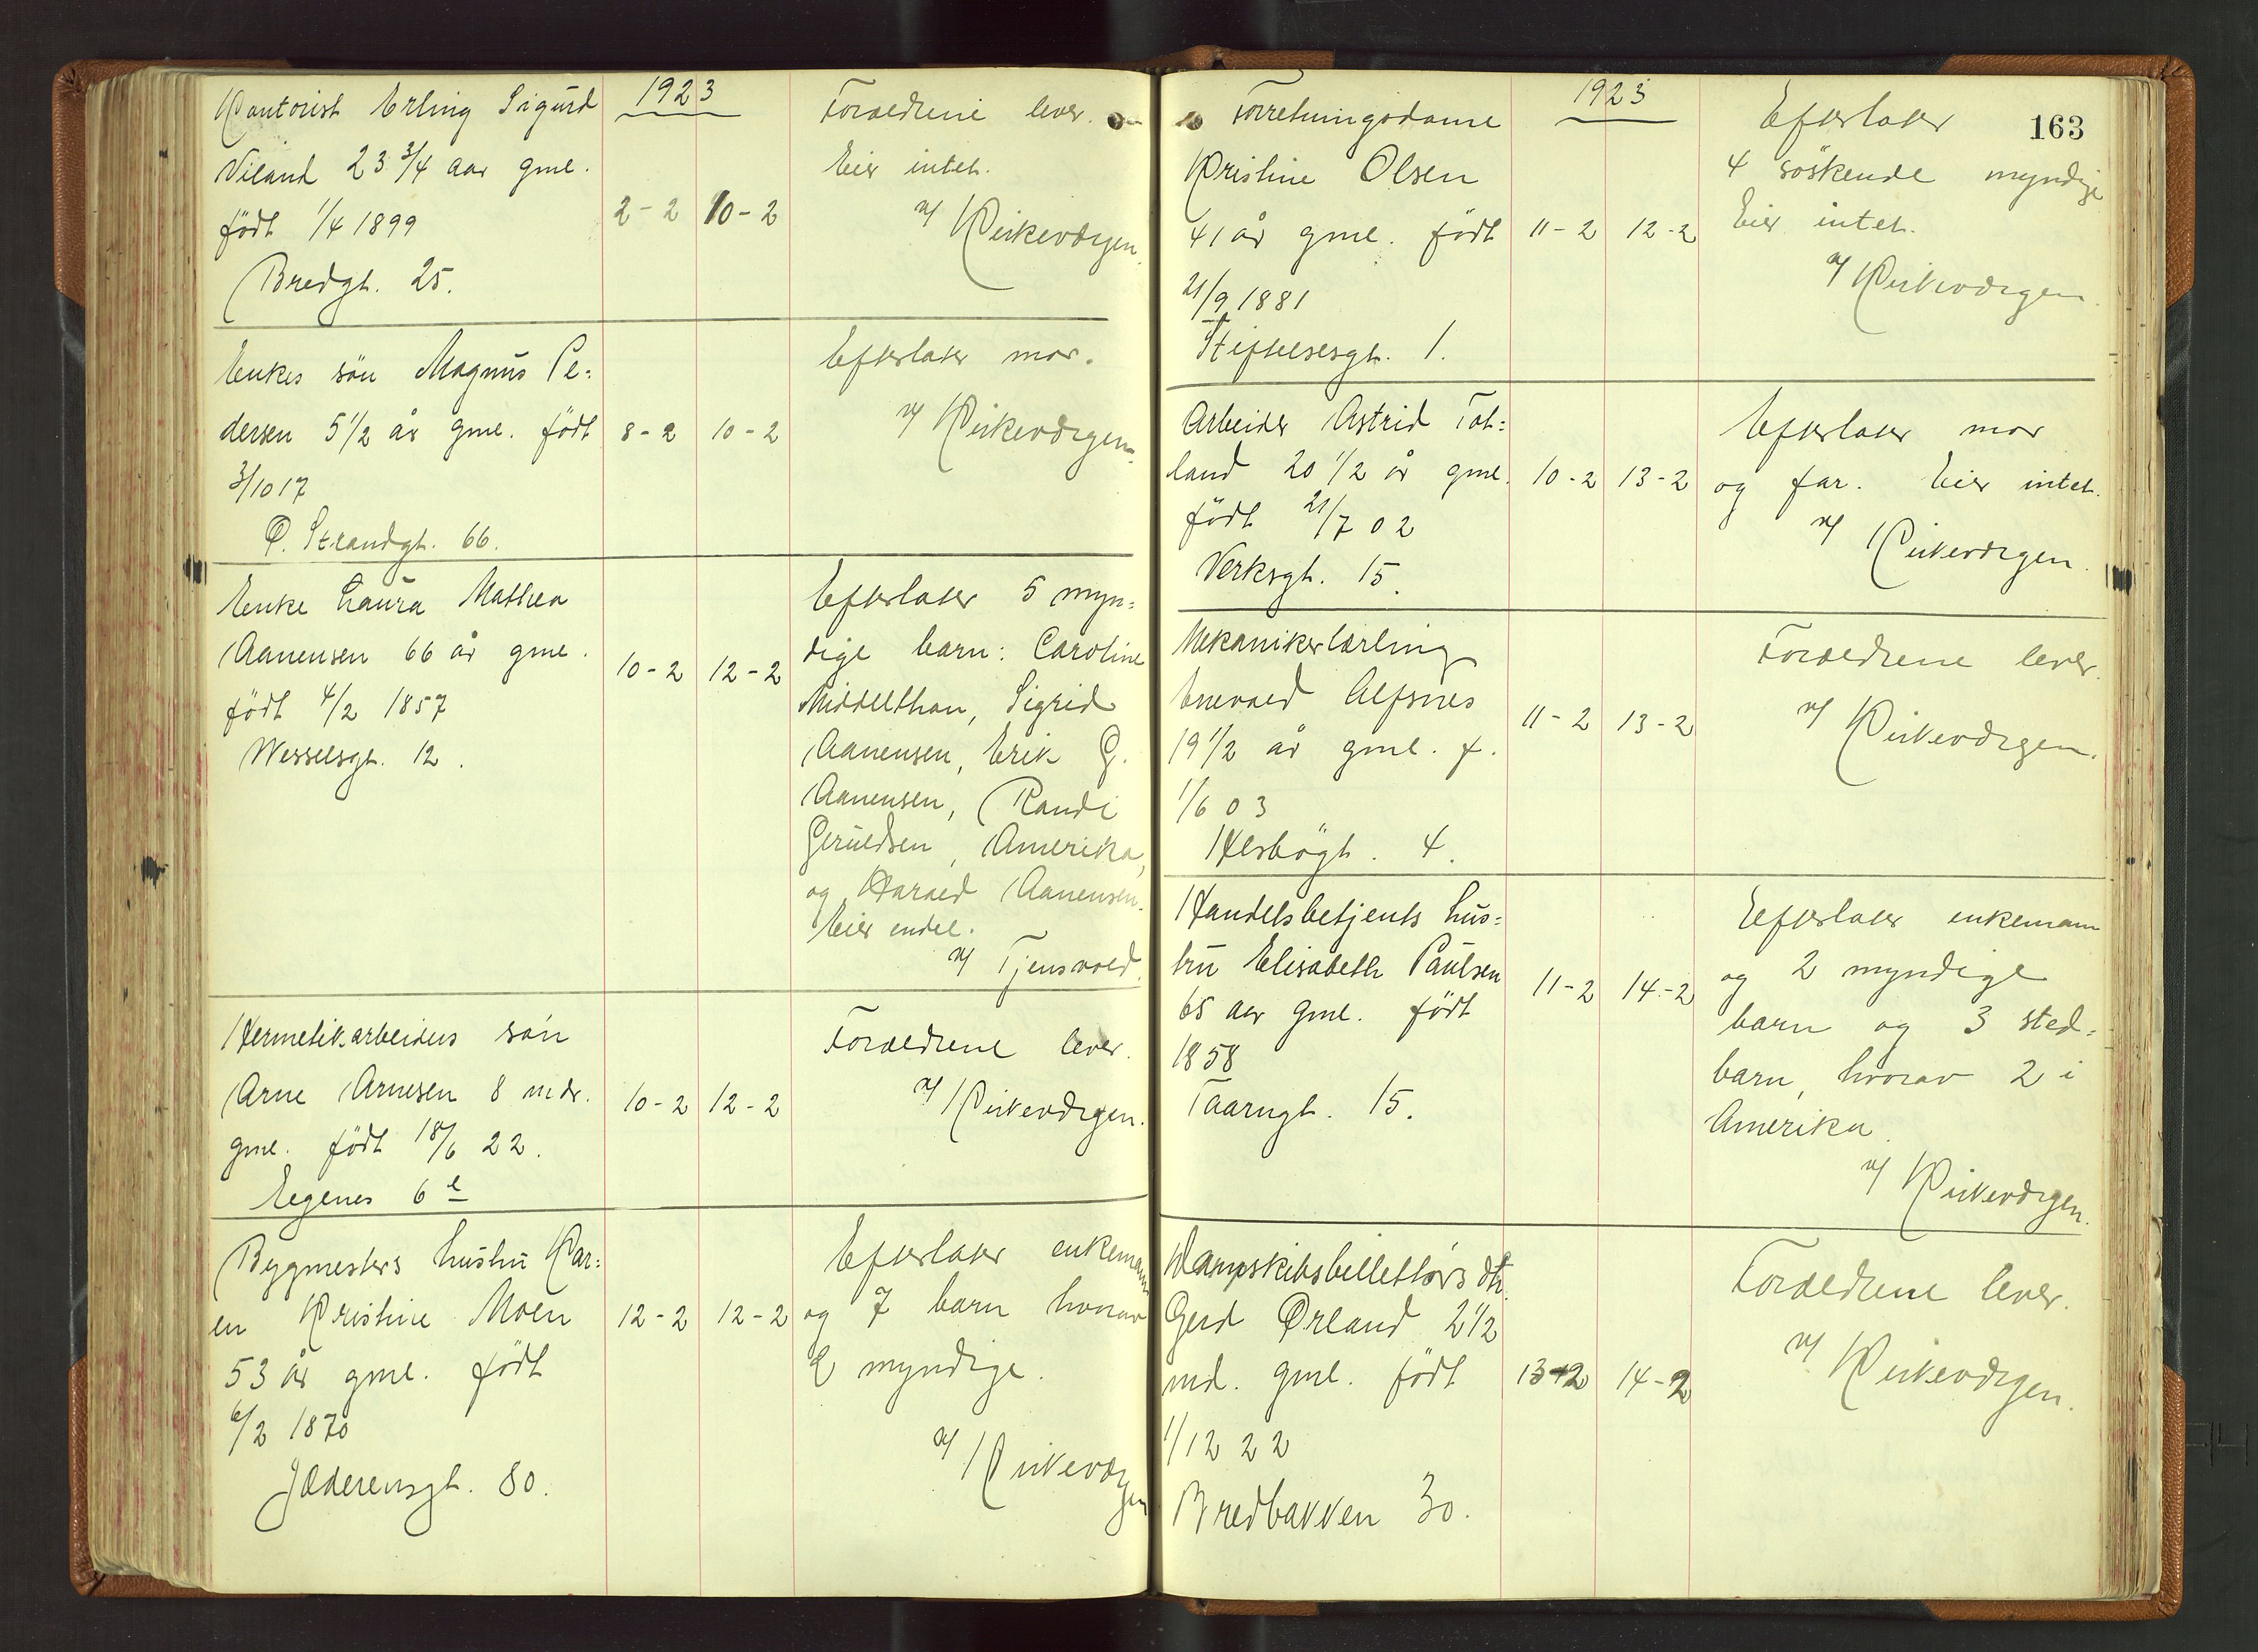 1923
Kontorist Erling Sigurd
Viland 23 3/4 aar gml.
født 1/4 1899
Bredgt. 25.
2-2 10-2
Forældrene lever.
Eier intet.
v/ Kirkeværgen.
Enkes søn Magnus Pe=
dersen 5 1/2 år gml. født
3/10 17
Ø. Strandgt. 66.
8-2 10-2
Efterlater mor.
v/ Kirkeværgen.
Enke Laura Mathea
Aanensen 66 år gml.
født 4/2 1857
Wesselsgt. 12.
10-2 12-2
Efterlater 5 myn=
dige barn: Caroline
Middelthon, Sigrid
Aanensen, Erik G.
Aanensen, Randi
Amerika,
og Harald Aanensen.
Eier endel.
v/ Tjensvold.
Hermetikarbeiders søn
Arne Arnesen 8 mdr.
gml. født 18/6 22.
Egenes 6 e
10-2 12-2
Forældrene lever.
v/ Kirkeværgen.
Bygmesters hustru Kar=
en Kristine Moen
53 år gml. født
6/2 1870
Jæderensgt. 80.
12-2 12-2
Efterlater enkemann
og 7 barn hvorav
2 myndige.
v/ Kirkeværgen
163
1923
Forretningsdame
Kristine Olsen
41 år gml. født
21/9 1881
Stiftelsesgt. 1.
11-2 12-2
Efterlater
4 søskende myndige
Eier intet.
v/ Kirkeværgen.
Arbeider Astrid Tot=
land 20 1/2 år gml.
født 21/7 02
Verksgt. 15.
10-2 13-2
Efterlater mor
og far. Eier intet.
v/ Kirkeværgen.
Mekanikerlærling
Enevald Alfsnes
19 1/2 år gml. f.
1/6 03
4.
11-2 13-2
Forældrene lever.
v/ Kirkeværgen.
Handelsbetjents hus=
tru Elisabeth Paulsen
65 aar gml. født
1858
Taarngt. 15.
11-2 14-2
Efterlater enkemann
og 2 myndige
barn og 3 sted=
barn, hvorav 2 i
Amerika.
v/ Kirkeværgen.
Dampskibsbillettørs dtr.
Gerd Ørland 2 1/2
md. gml. født
1/12 22
Bredbakken 30.
13-2 14-2
Forældrene lever.
v/ Kirkeværgen.